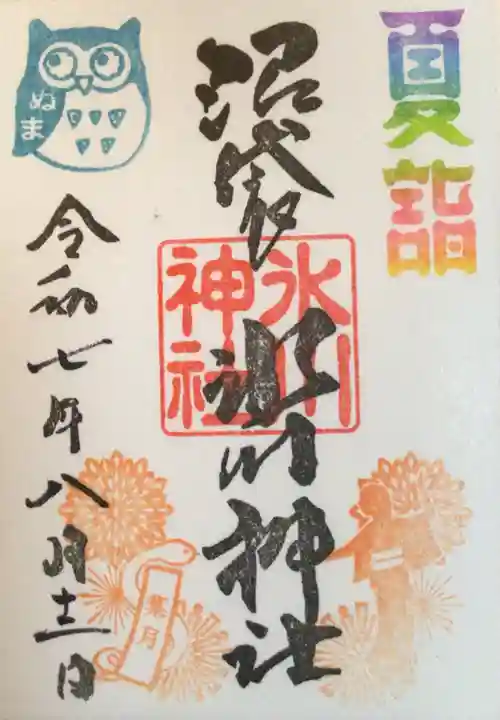 夏詣
沼袋
氷川神社
氷川
神社
ぬま
令和七年八月十二日
葉月